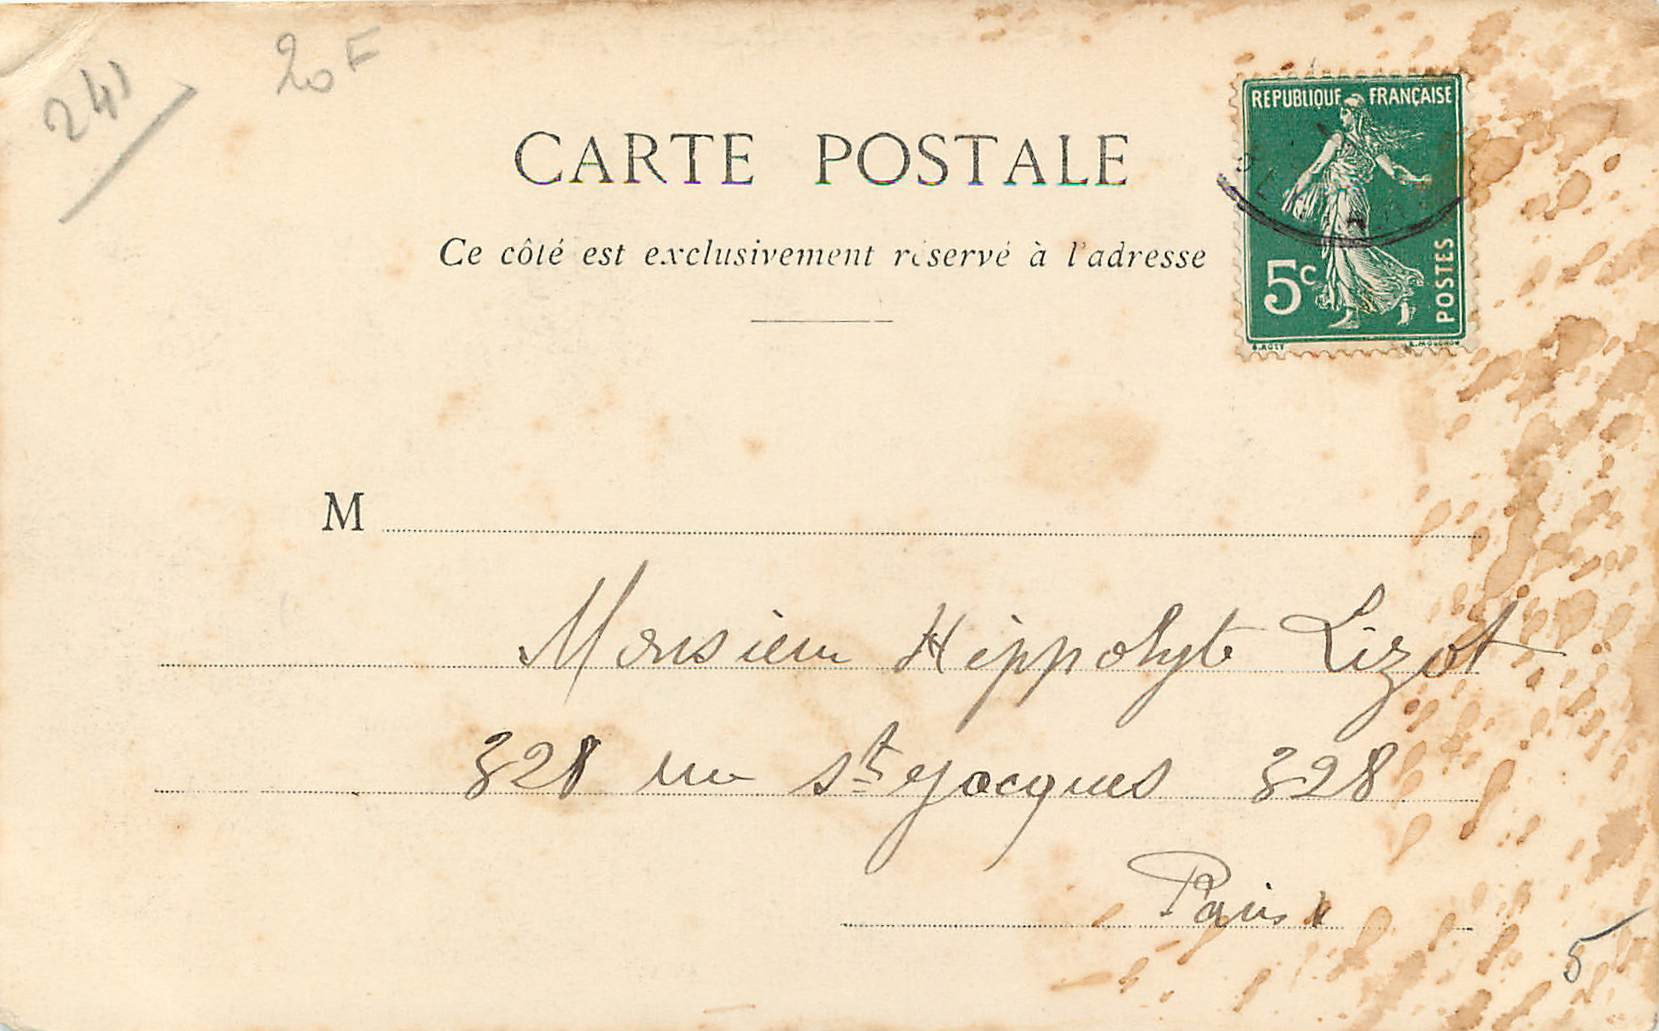 241
20F
CARTE POSTALE
Ce côté est exclusivement réservé à l'adresse
REPUBLIQUE FRANÇAISE
5c
POSTES
M
Monsieur Hippolyte Lizot
328 rue St Jacques 328
Paris
5